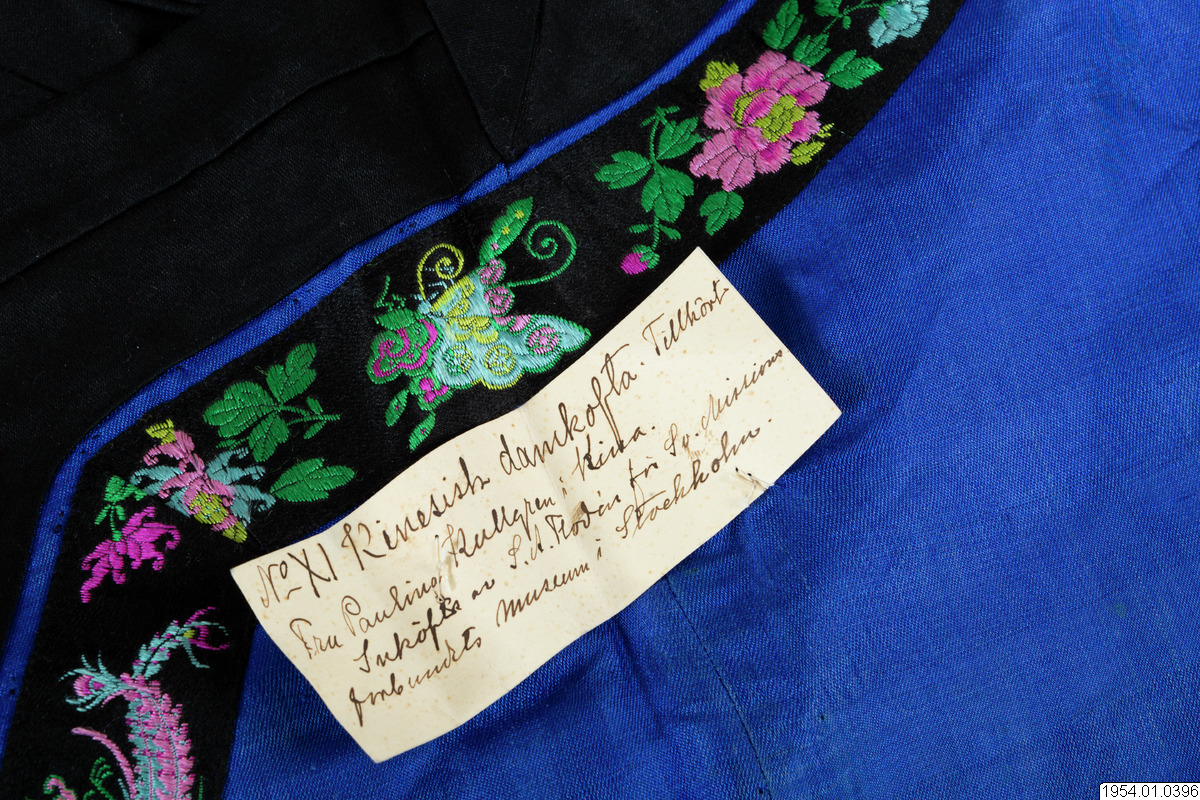 No XI Kinesisk damkofta. Tillhört
Fru Pauline Kullgren i Kina.
Inköpt av S. A. Flodén för Sv. Missions
förbundets museum i Stockholm.
1954.01.0396